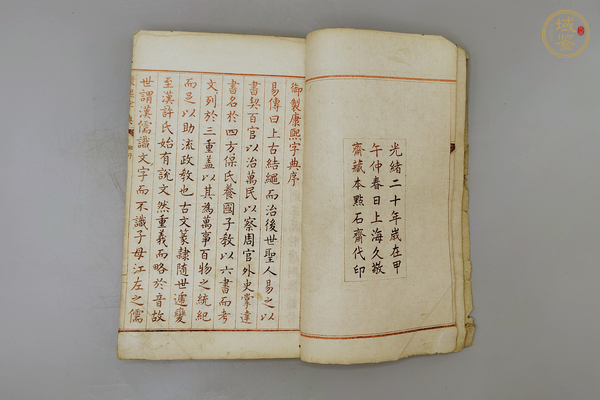 光緒二十年歲在甲
午仲春日上海久敬
齋藏本點石齋代印
御製康熙字典序
易傳曰上古結繩而治後世聖人易之以
書契百官以治萬民以察周官外史掌達
書名於四方保氏養國子教以六書而考
文列於三重蓋以其為萬事百物之統紀
而足以助流政教也古文篆隸隨世遞變
至漢許氏始有說文然重義而略於音故
世謂漢儒識文字而不識子母江左之儒
域鑒